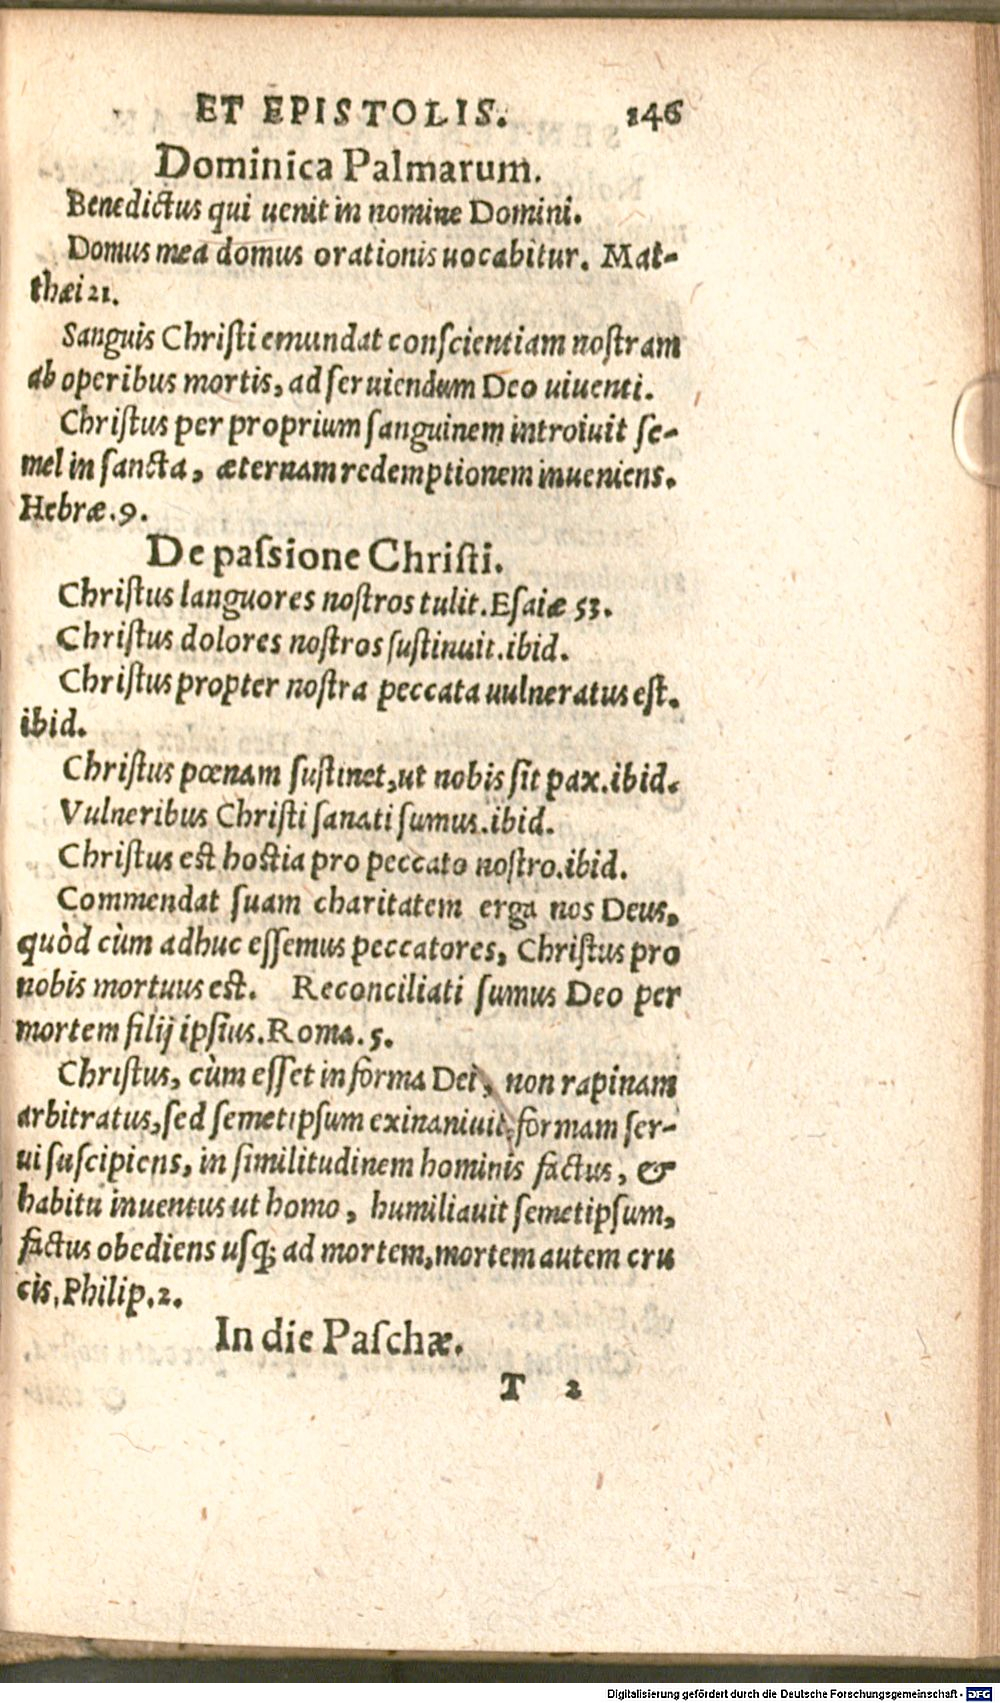 ET EPISTOLIS. 146
Dominica Palmarum.
Benedictus qui uenit in nomine Domini.
Domus mea domus orationis uocabitur. Mat-
thæi 21.
Sanguis Chriſti emundat conſcientiam noſtram
ab operibus mortis, ad ſeruiendum Deo uiuenti.
Chriſtus per proprium ſanguinem introiuit ſe-
mel in ſancta, æternam redemptionem inueniens.
Hebræ. 9.
De paſsione Chriſti.
Chriſtus languores noſtros tulit. Eſaiæ 53.
Chriſtus dolores noſtros ſuſtinuit. ibid.
Chriſtus propter noſtra peccata uulneratus eſt.
ibid.
Chriſtus pœnam ſuſtinet, ut nobis ſit pax. ibid.
Vulneribus Chriſti ſanati ſumus. ibid.
Chriſtus eſt hoſtia pro peccato noſtro. ibid.
Commendat ſuam charitatem erga nos Deus,
quòd cùm adhuc eſſemus peccatores, Chriſtus pro
nobis mortuus eſt. Reconciliati ſumus Deo per
mortem filij ipſius. Roma. 5.
Chriſtus, cùm eſſet in forma Dei, non rapinam
arbitratus, ſed ſemetipſum exinaniuit, formam ſer-
ui ſuſcipiens, in ſimilitudinem hominis factus, &
habitu inuentus ut homo, humiliauit ſemetipſum,
factus obediens uſq; ad mortem, mortem autem cru
cis, Philip. 2.
In die Paſchæ.
T 2
Digitalisierung gefördert durch die Deutsche Forschungsgemeinschaft - DFG